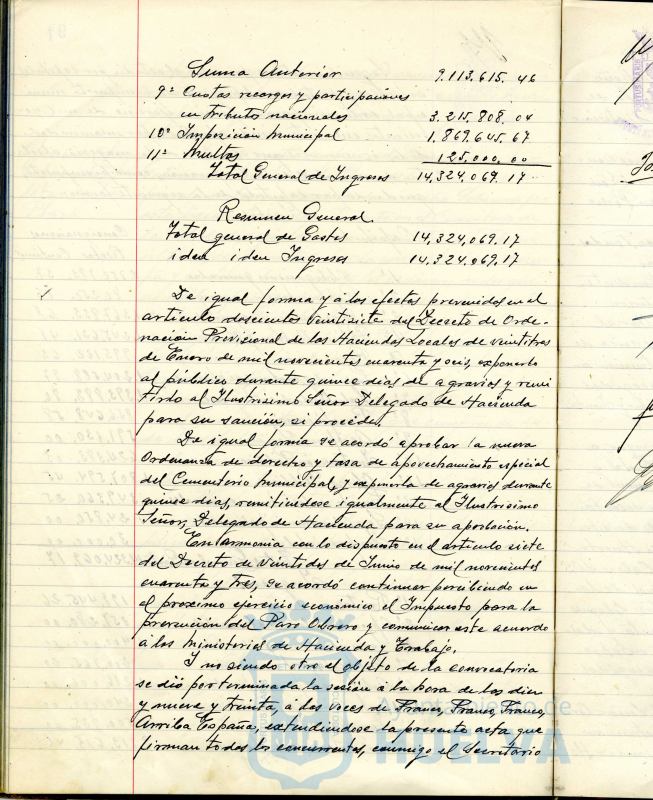 Suma Anterior 9.113.615. 46
9º Cuotas recargos y participaciones
en tributos nacionales 3.215.808. 04
10º Imposición Municipal 1.869.645. 67
11º Multas 125.000, 00
Total General de Ingresos 14,324,069. 17
Resumen General.
Total general de Gastos 14,324,069. 17
iden iden Ingresos 14,324,069. 17
De igual forma y á los efectos prevenidos en el
articulo doscientos veintisiete del Decreto de Orde-
nación Provisional de las Haciendas Locales de veinticinco
de Enero de mil novecientos cuarenta y seis, exponerlo
al público durante quince dias de agravios y remi
tirlo al Ilustrisimo Señor Delegado de Hacienda
para su sanción, si procede.
De igual forma se acordó aprobar la nueva
Ordenanza de derecho y tasa de aprovechamiento especial
del Cementerio Municipal, y exponerla de agravios durante
quince dias, remitiendose igualmente al Ilustrisimo
Señor, Delegado de Hacienda para su aprobación.
En armonia con lo dispuesto en el articulo siete
del Decreto de veintidos de Junio de mil novecientos
cuarenta y tres, se acordó continuar percibiendo en
el proximo ejercicio económico el Impuesto para la
prevención del Paro Obrero y comunicar este acuerdo
á los Ministerios de Hacienda y Trabajo.
Y no siendo otro el objeto de la convocatoria
se dió por terminada la sesión á la hora de las diez
y nueve y treinta, a los voces de Franco, Franco, Franco,
Arriba España, extendiendose la presente acta que
firman todos los concurrentes, conmigo el Secretario
Ayuntamiento de
HUELVA